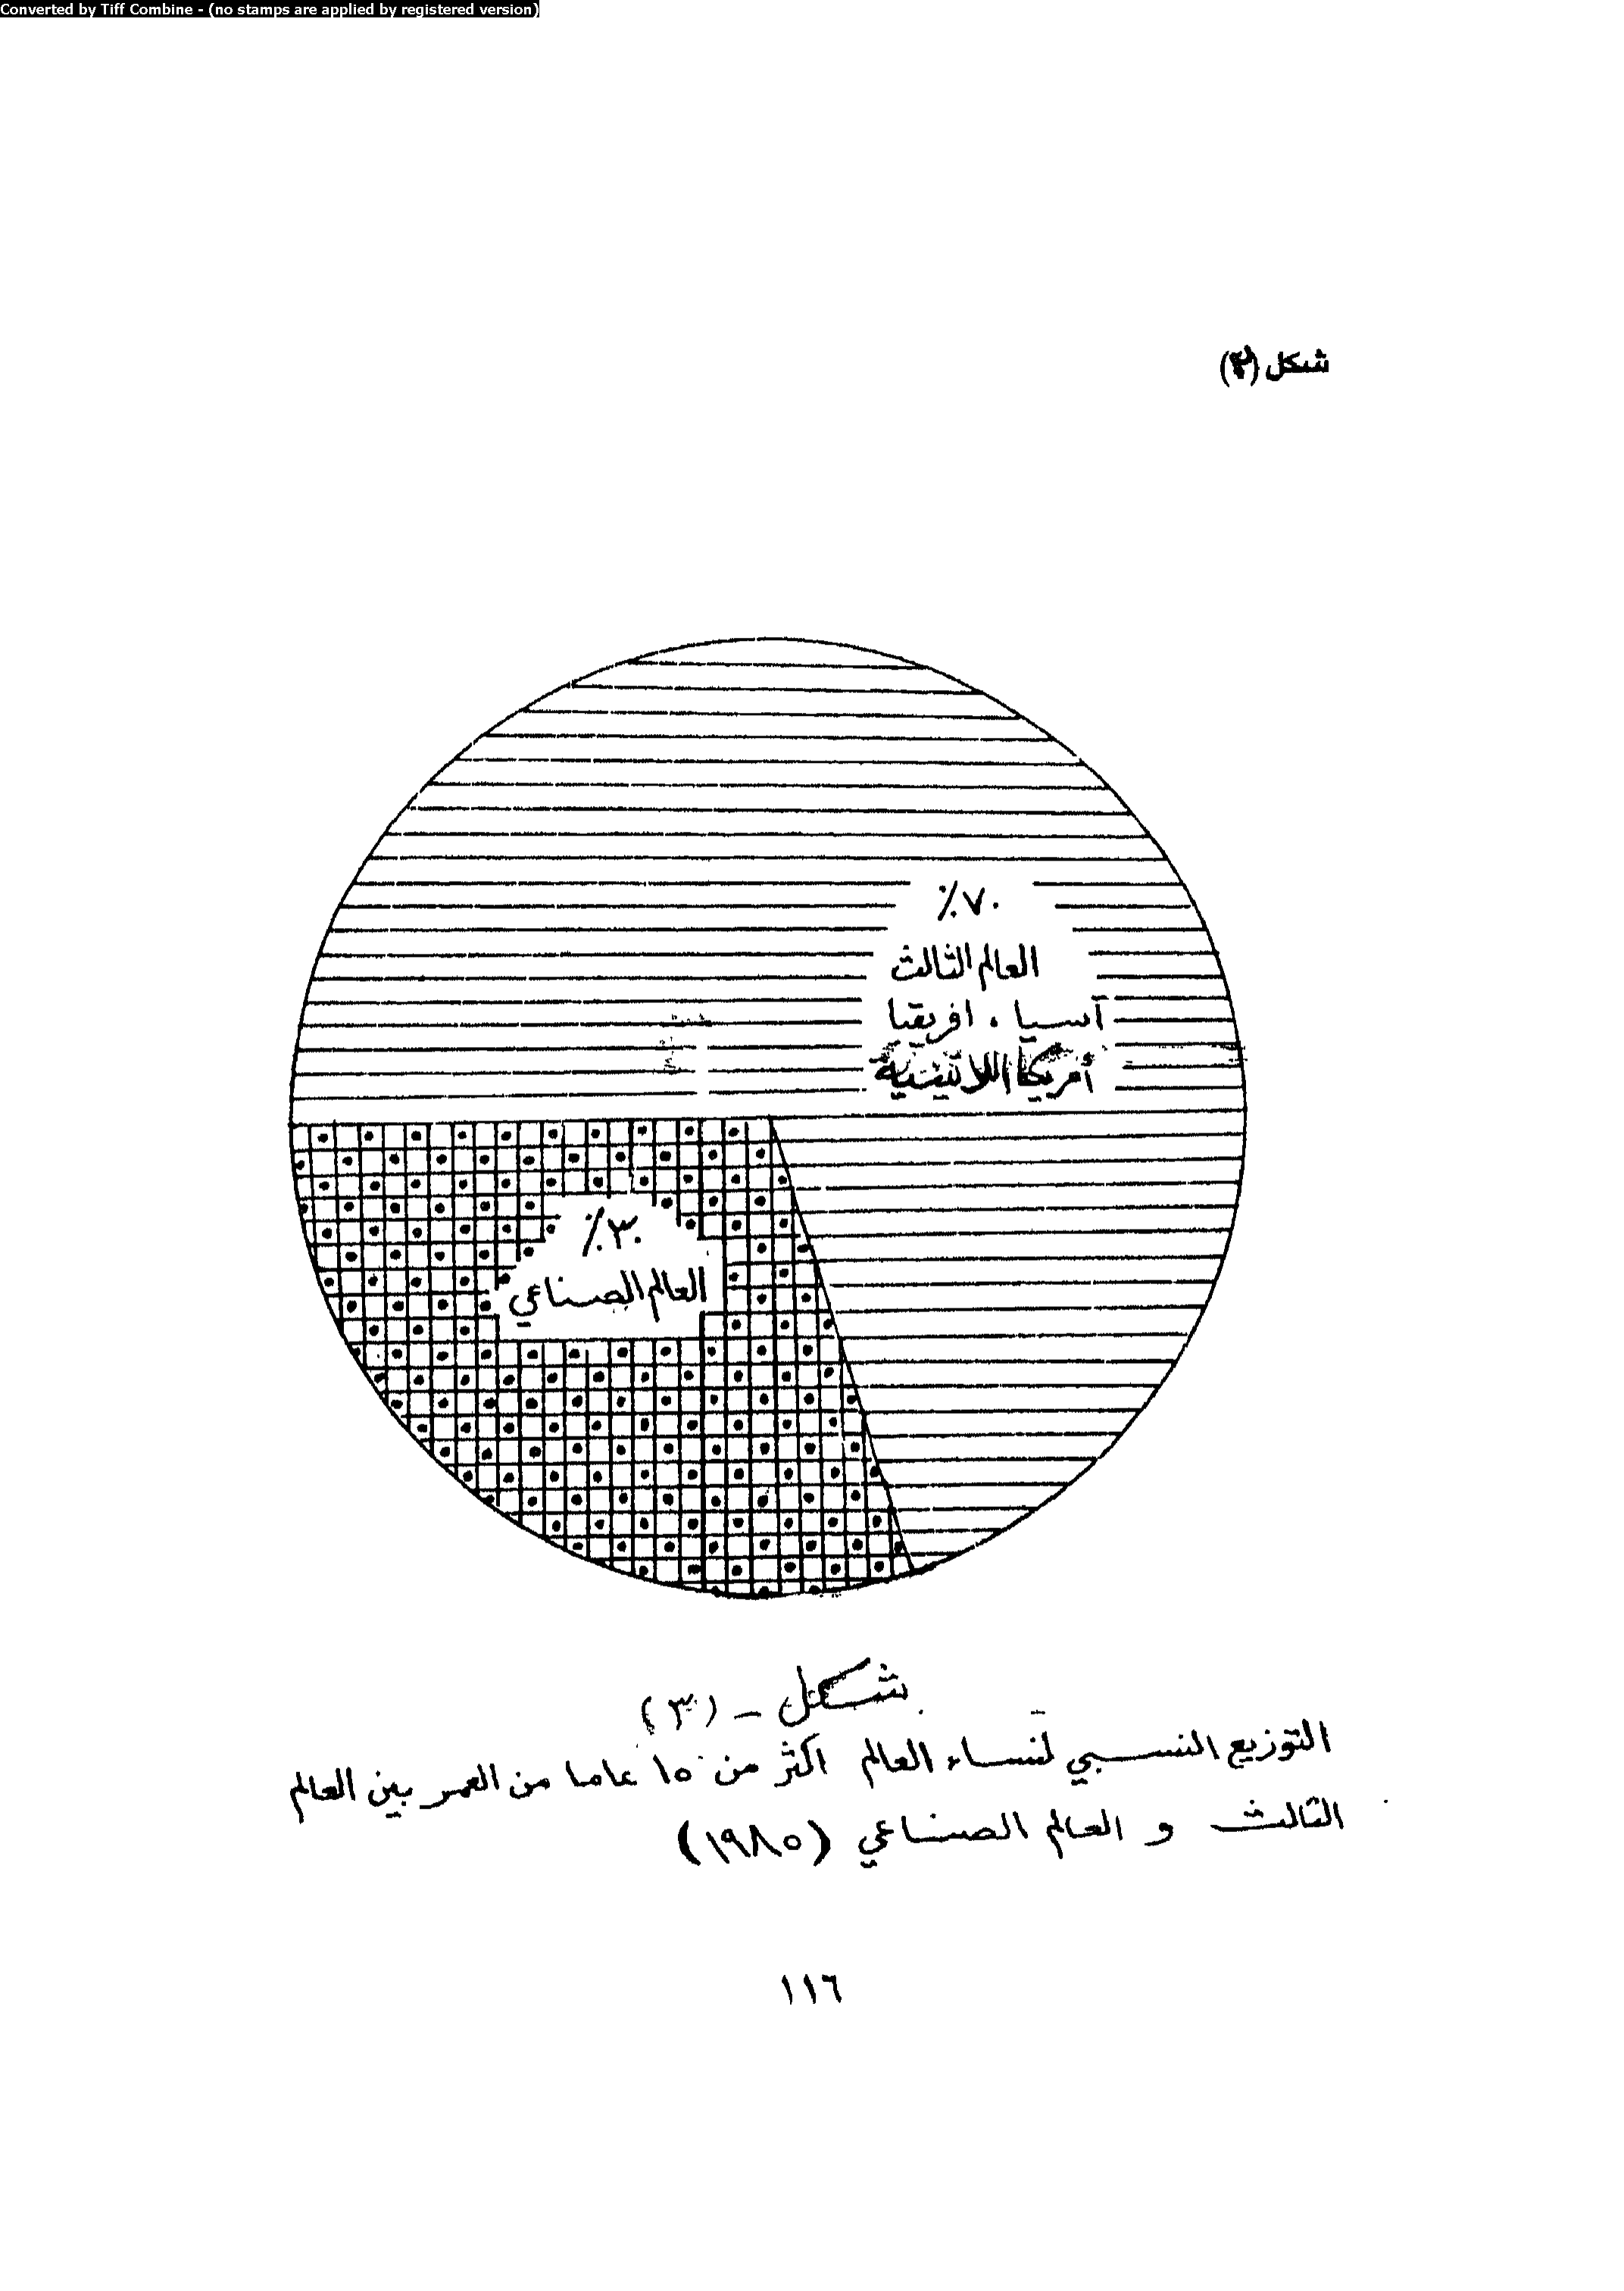 Converted by Tiff Combine - (no stamps are applied by registered version)
شكل (٣)
٪٧٠
العالم الثالث
آسيا ، افريقيا
أمريكا اللاتينية
٪٣٠
العالم الصناعي
شكل - (٣)
التوزيع النسبي لنساء العالم اكثر من ١٥ عاما من العمر بين العالم
الثالث و العالم الصناعي (١٩٨٥)
١١٦